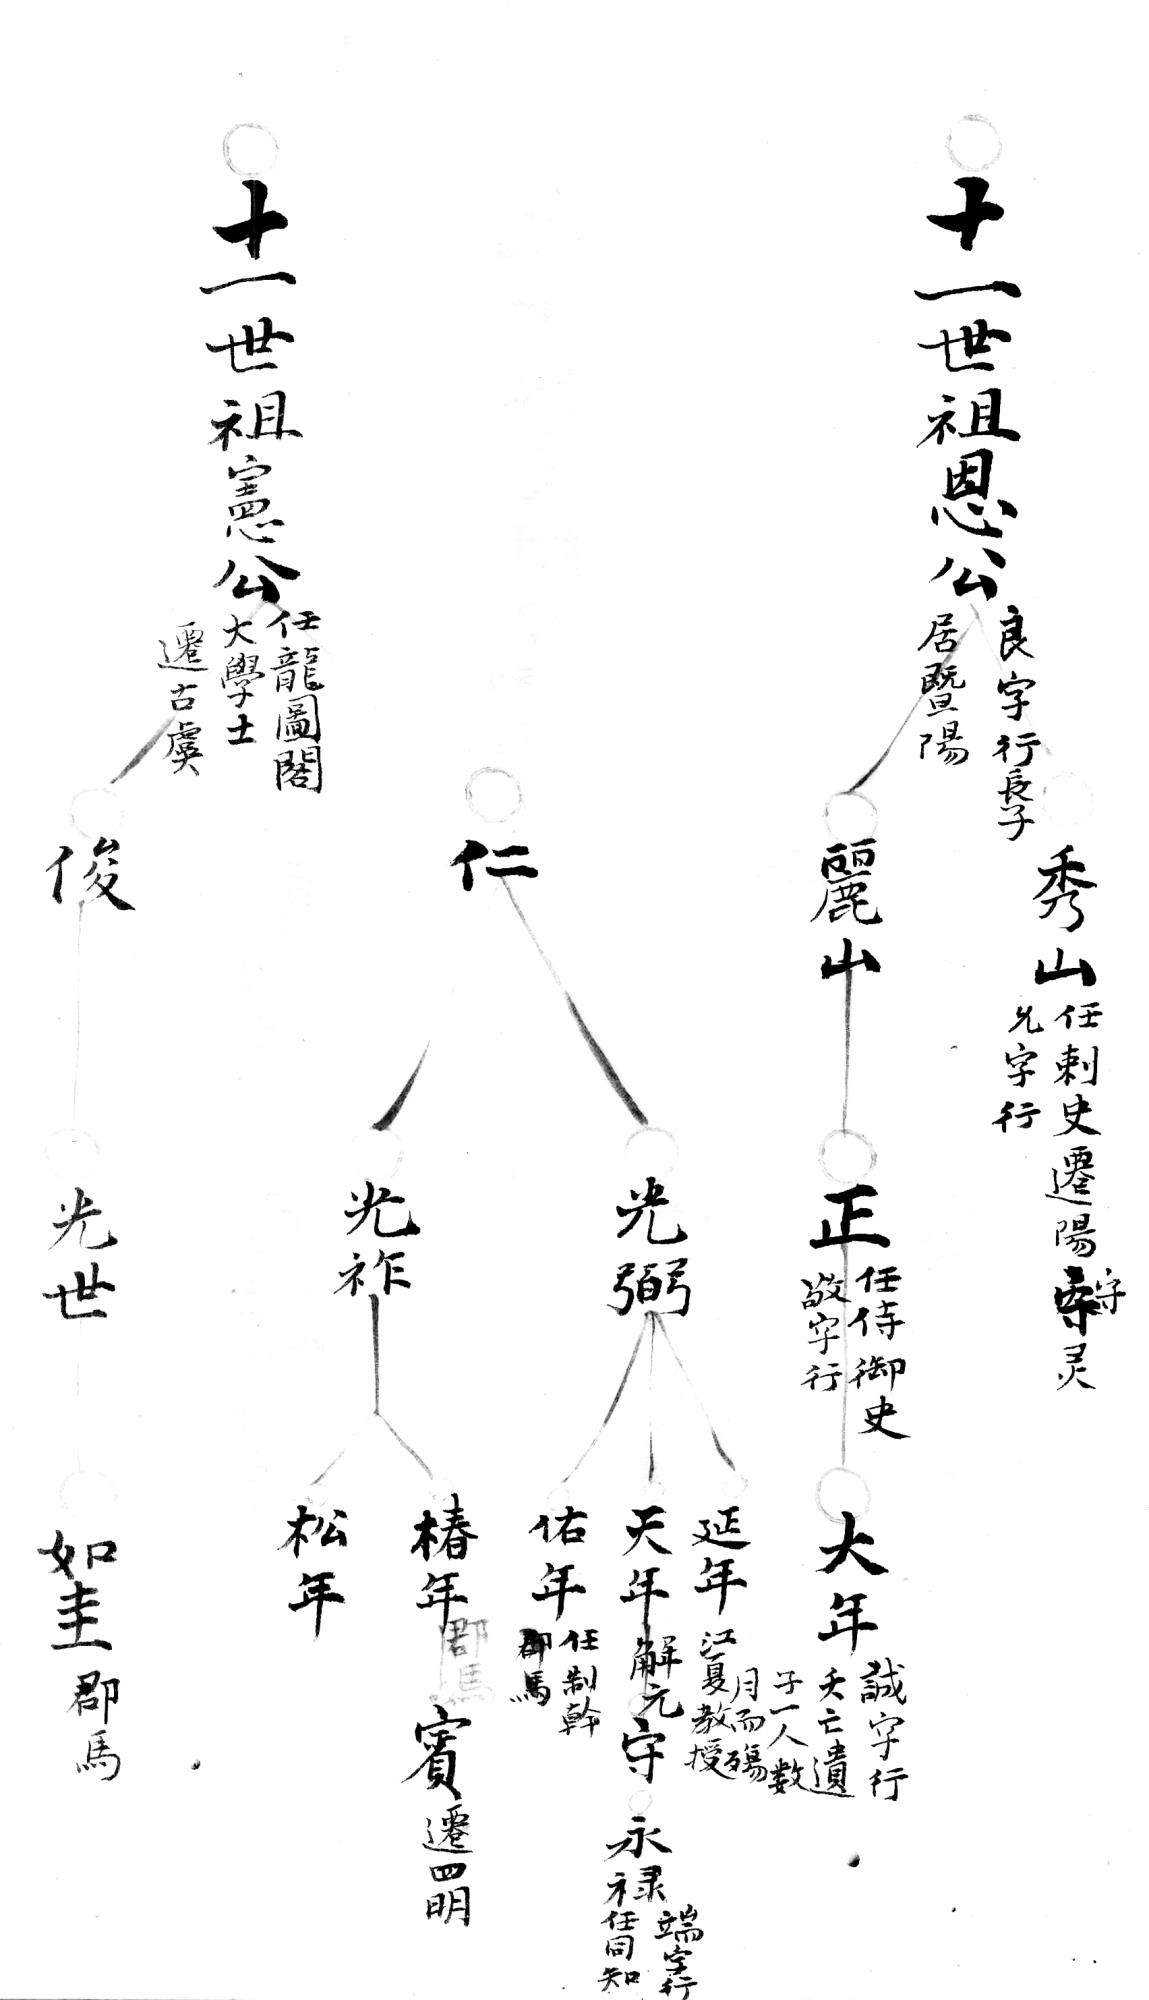 十一世祖恩公
良字行長子
居暨陽
秀山
任刺史遷陽
守
灵
允字行
麗山
正
任侍御史
敬字行
大年
誠字行
夭亡遺
子一人数
月而殤
延年
江夏教授
天年
解元
守
永禄
端字行
任同知
佑年
任制幹
郡馬
仁
光弼
光祚
椿年
郡馬
賓
遷四明
松年
十一世祖憲公
任龍圖閣
大學士
遷古虞
俊
光世
如圭
郡馬